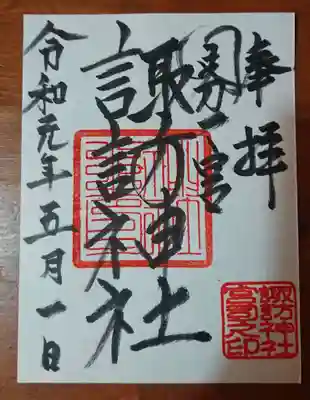 奉拝
一宮
諏訪神社
令和元年五月一日
諏方神社
宮司之印